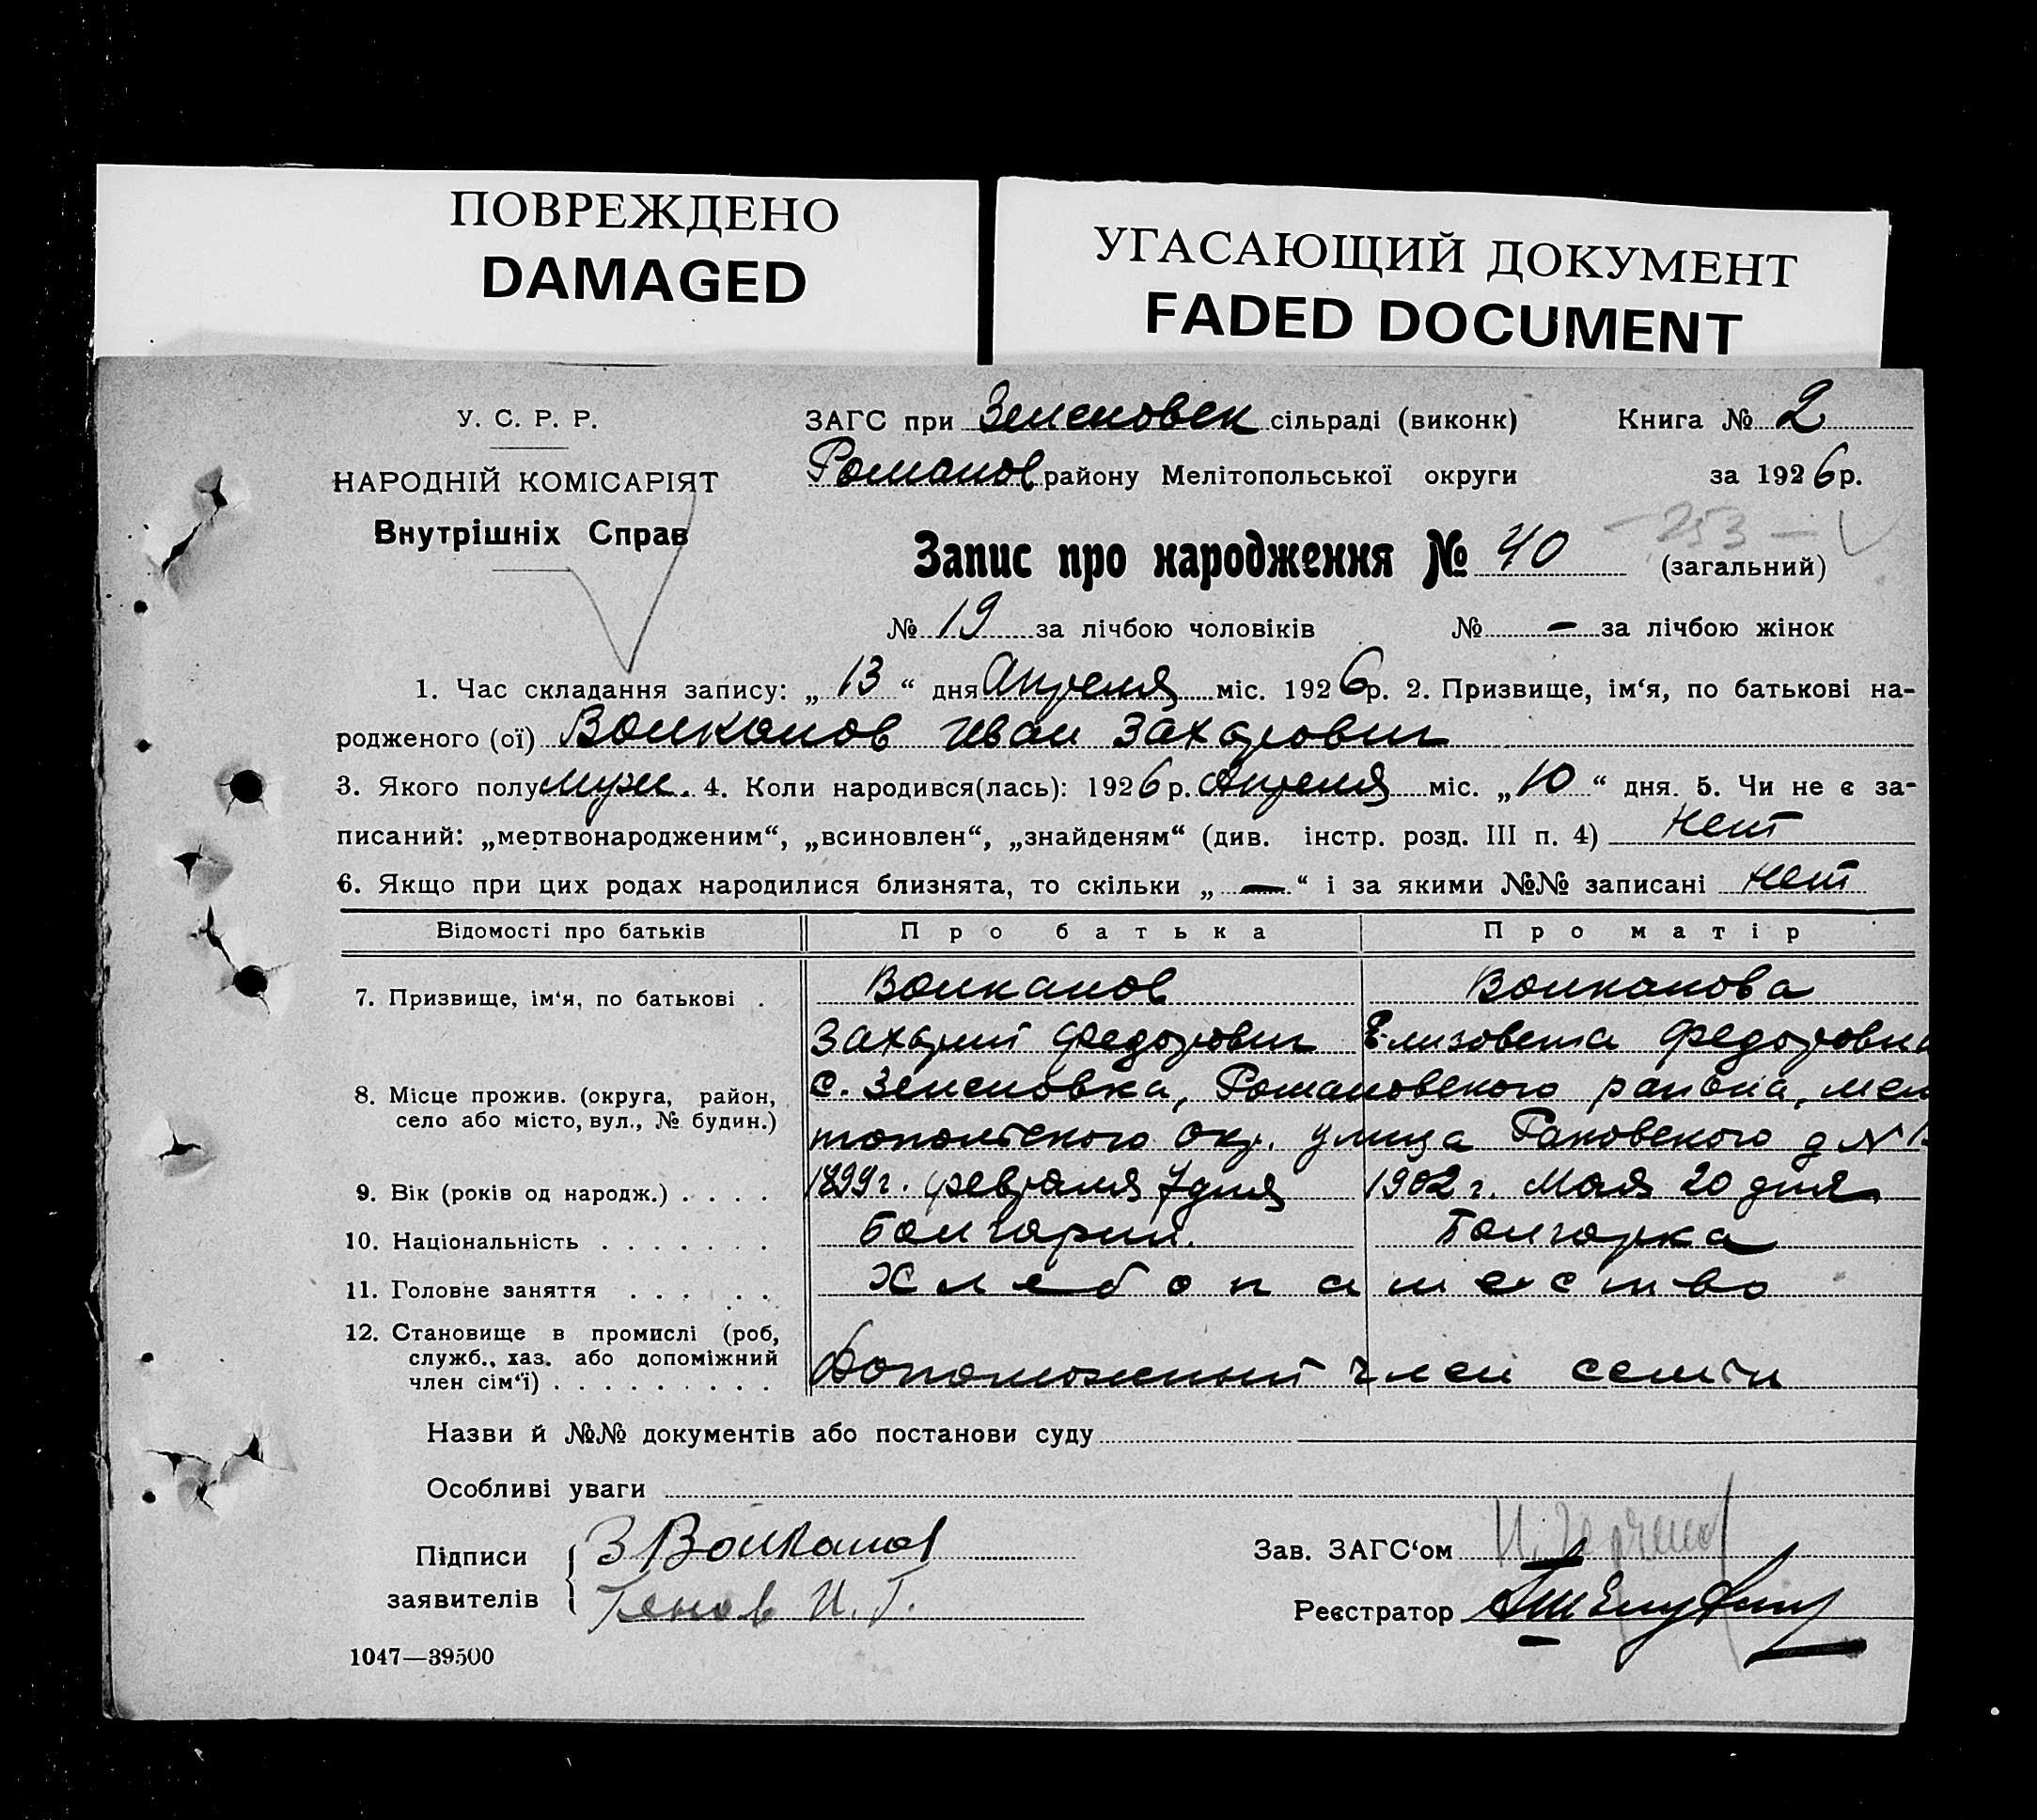 ПОВРЕЖДЕНО
DAMAGED
УГАСАЮЩИЙ ДОКУМЕНТ
FADED DOCUMENT
У. С. Р. Р.
НАРОДНІЙ КОМІСАРІЯТ
Внутрішніх Справ
ЗАГС при Зеленовск сільраді (виконк) Книга № 2
Романов району Мелітопольської округи за 1926 р.
253
Запис про народження № 40 (загальний)
№ 19 за лічбою чоловіків № — за лічбою жінок
1. Час складання запису: „ 13 “ дня Апреля міс. 1926 р. 2. Призвище, ім‘я, по батькові на-
родженого (ої) Волканов Иван Захарович
3. Якого полу муж. 4. Коли народився(лась): 1926 р. Апреля міс. „ 10 “ дня. 5. Чи не є за-
писаний: „мертвонародженим“, „всиновлен“, „знайденям“ (див. інстр. розд. III п. 4) Нет
6. Якщо при цих родах народилися близнята, то скільки „ — “ і за якими №№ записані нет
Відомості про батьків Про батька Про матір
7. Призвище, ім‘я, по батькові . Волканов Волканова
Захарий Федорович Елизовета Федоровна
8. Місце прожив. (округа, район, село або місто, вул., № будин.) с. Зеленовка, Романовского района, мели
топольского Окр. улица Раковского д №
9. Вік (років од народж.) . . . . 1899 г. февраля 7 дня 1902 г. Мая 20 дня
10. Національність . . . . . . . Болгарин. Болгарка
11. Головне заняття . . . . . Хлебопашество
12. Становище в промислі (роб,
служб., хаз. або допоміжний
член сім‘ї) . . . . . . . . . Допоможенный член семьи
Назви й №№ документів або постанови суду
Особливі уваги
Підписи заявителів З Волканов
Генов И. Г.
Зав. ЗАГС‘ом
Реєстратор
1047—39500